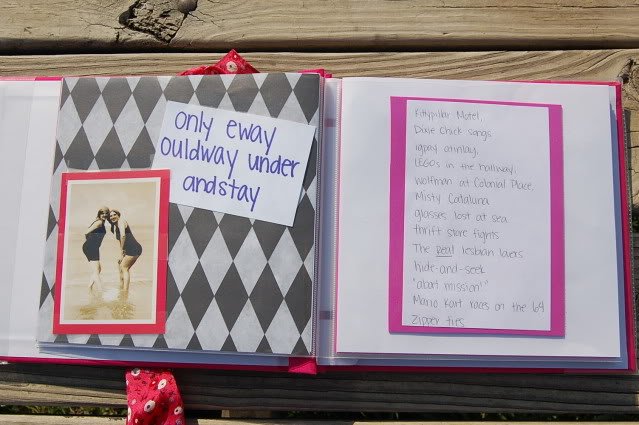 only eway
ouldway under
andstay
Kittypillar Motel,
Dixie Chick songs
igpay atinlay,
LEGOs in the hallway,
Wolfman at Colonial Place,
Misty Cataluna
glasses lost at sea
thrift store fights
The real lesbian lovers
hide-and-seek
"abort mission!"
Mario Kart races on the 64
Zipper ties